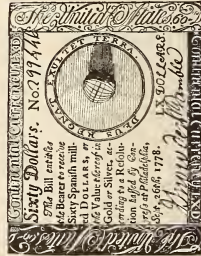 The United States
Continental Currency
Sixty Dollars. No.
This Bill entitles
the Bearer to receive
Sixty Spanish mill-
ed DOLLARS, or
the Value thereof in
Gold or Silver, ac-
cording to a Resolu-
tion passed by Con-
gress at Philadelphia,
Sept. 26th, 1778.
DEUS REGNAT EXULTET TERRA
LX DOLLARS.
The United States